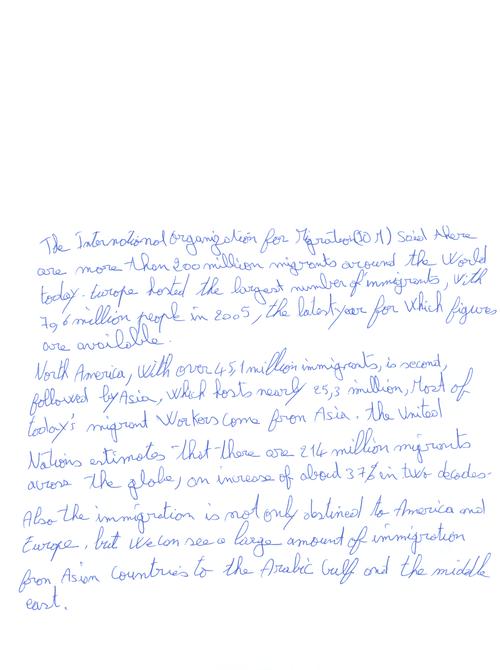 The International Organization for Migration (IOM) said there
are more than 200 million migrants around the World
today. Europe hosted the largest number of immigrants, with
70,6 million people in 2005, the latest year for which figures
are available.
North America, with over 45,1 million immigrants, is second,
followed by Asia, which hosts nearly 25,3 million, Most of
today's migrant workers come from Asia. the United
Nations estimates that there are 214 million migrants
across the globe, an increase of about 37% in two decades.
Also the immigration is not only obstined to America and
Europe, but we can see a large amount of immigration
from Asian countries to the Arabic Gulf and the middle
east.